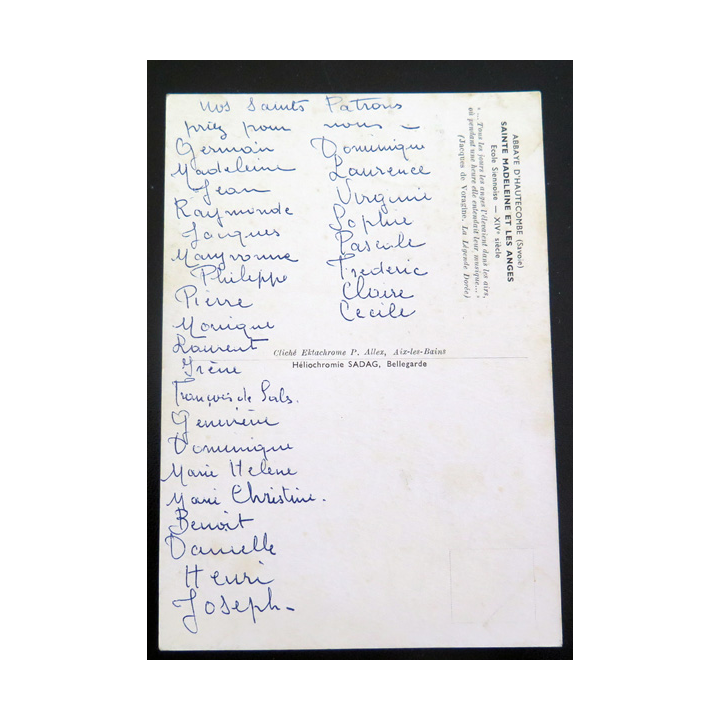 Nos Saints Patrons
priez pour nous —
Germain
Madeleine
Jean
Raymonde
Jacques
Maryvonne
Philippe
Pierre
Monique
Laurent
Irène
François de Sals.
Geneviève
Dominique
Marie Hélène
Marie Christine.
Benoît
Danielle
Henri
Joseph -
Dominique
Laurence
Virginie
Sophie
Pascale
Frédéric
Claire
Cécile
ABBAYE D'HAUTECOMBE (Savoie)
SAINTE MADELEINE ET LES ANGES
Ecole Siennoise — XIVe siècle
« ...Tous les jours les anges l'élevaient dans les airs,
où pendant une heure elle entendait leur musique... »
(Jacques de Voragine. La Légende Dorée)
Cliché Ektachrome P. Allex, Aix-les-Bains
Héliochromie SADAG, Bellegarde